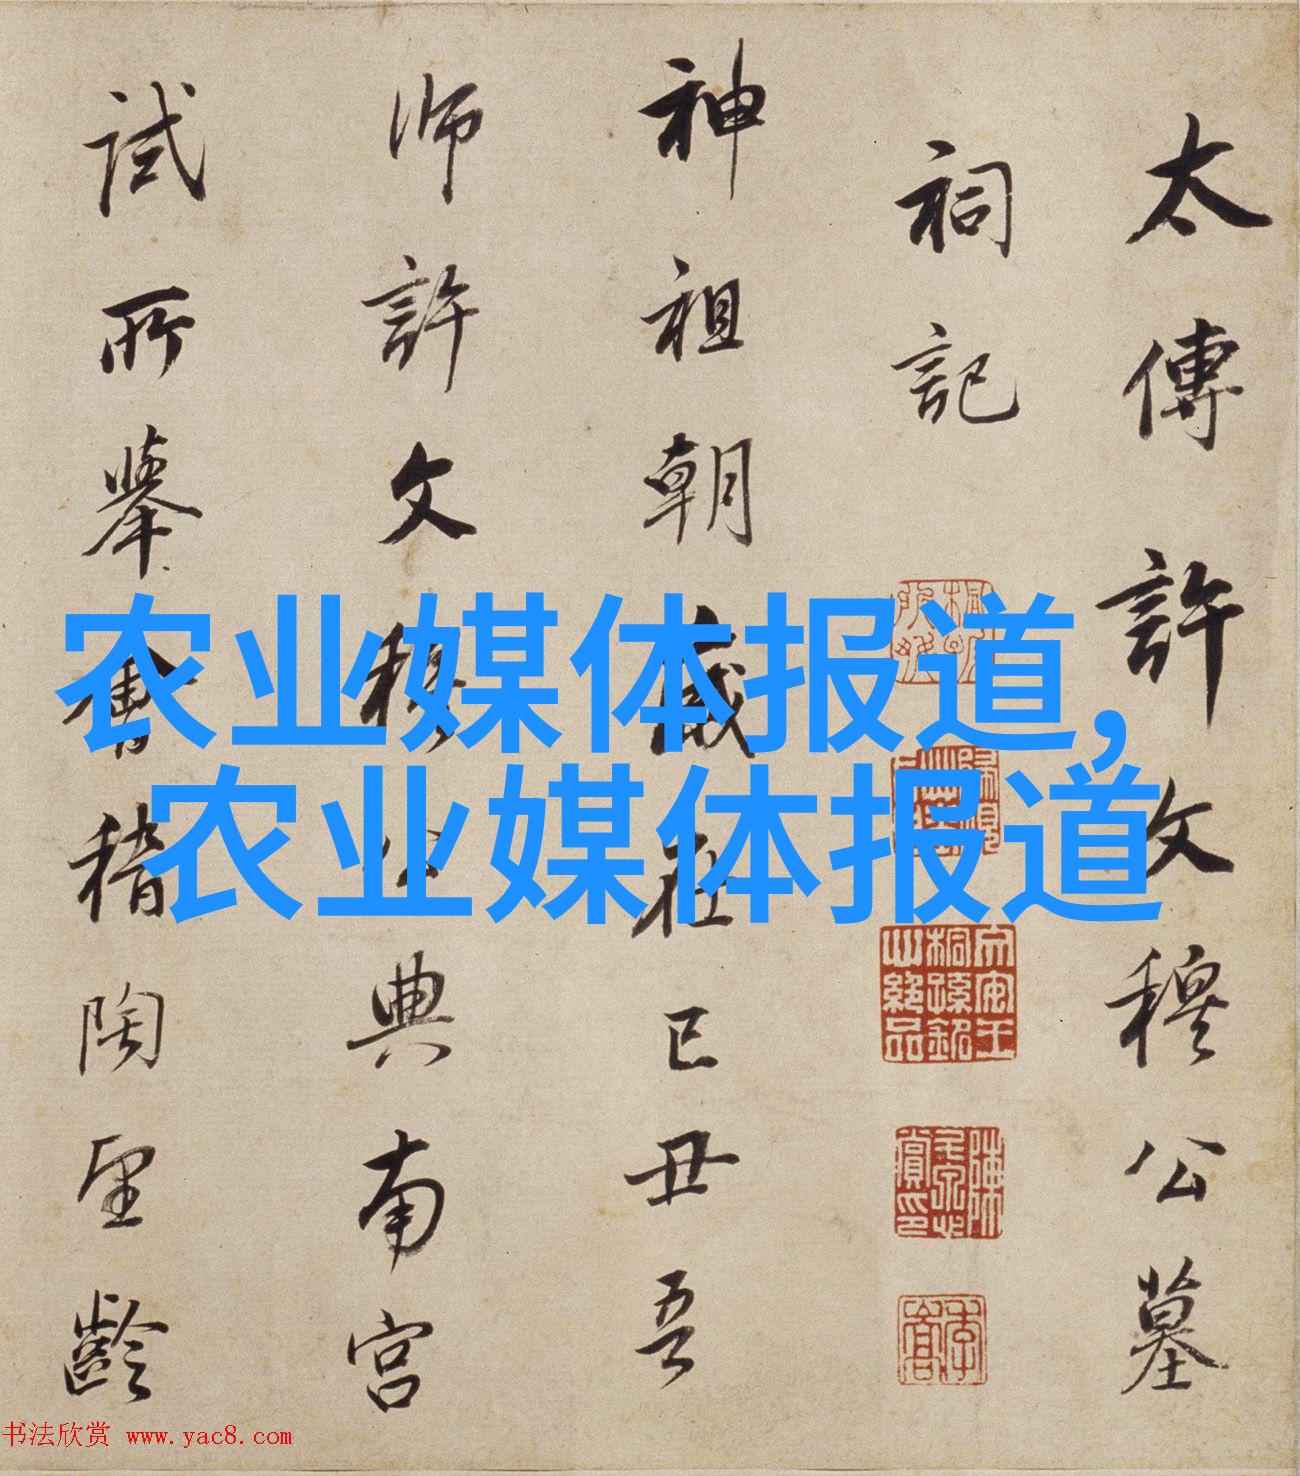 太傳許文穆公墓
祠記
神祖朝歲在己丑吾
師許文穆公典南宮
試所舉會稽陶望齡
农业媒体报道,
农业媒体报道
书法欣赏 www.yac8.com